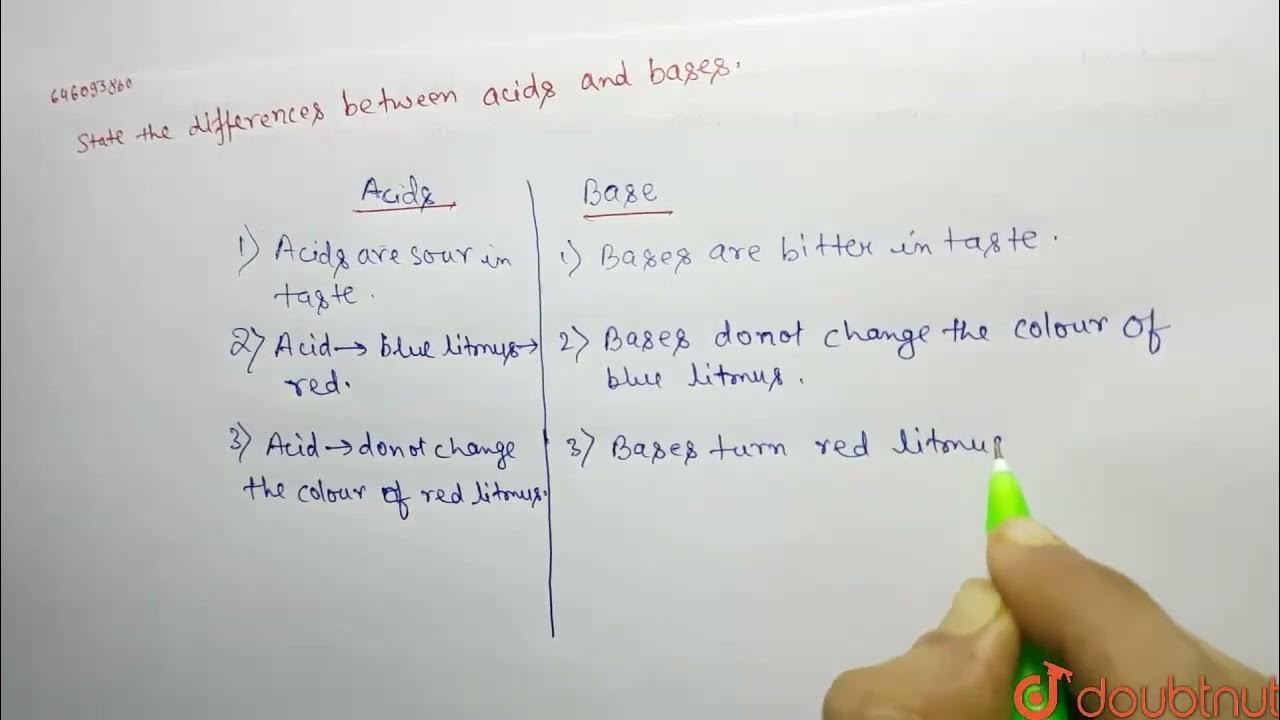 646093860
State the differences between acids and bases.
Acids
Base
1) Acids are sour in
taste.
1) Bases are bitter in taste.
2) Acid → blue litmus →
red.
2) Bases donot change the colour of
blue litmus.
3) Acid → donot change
the colour of red litmus.
3) Bases turn red litmus
doubtnut